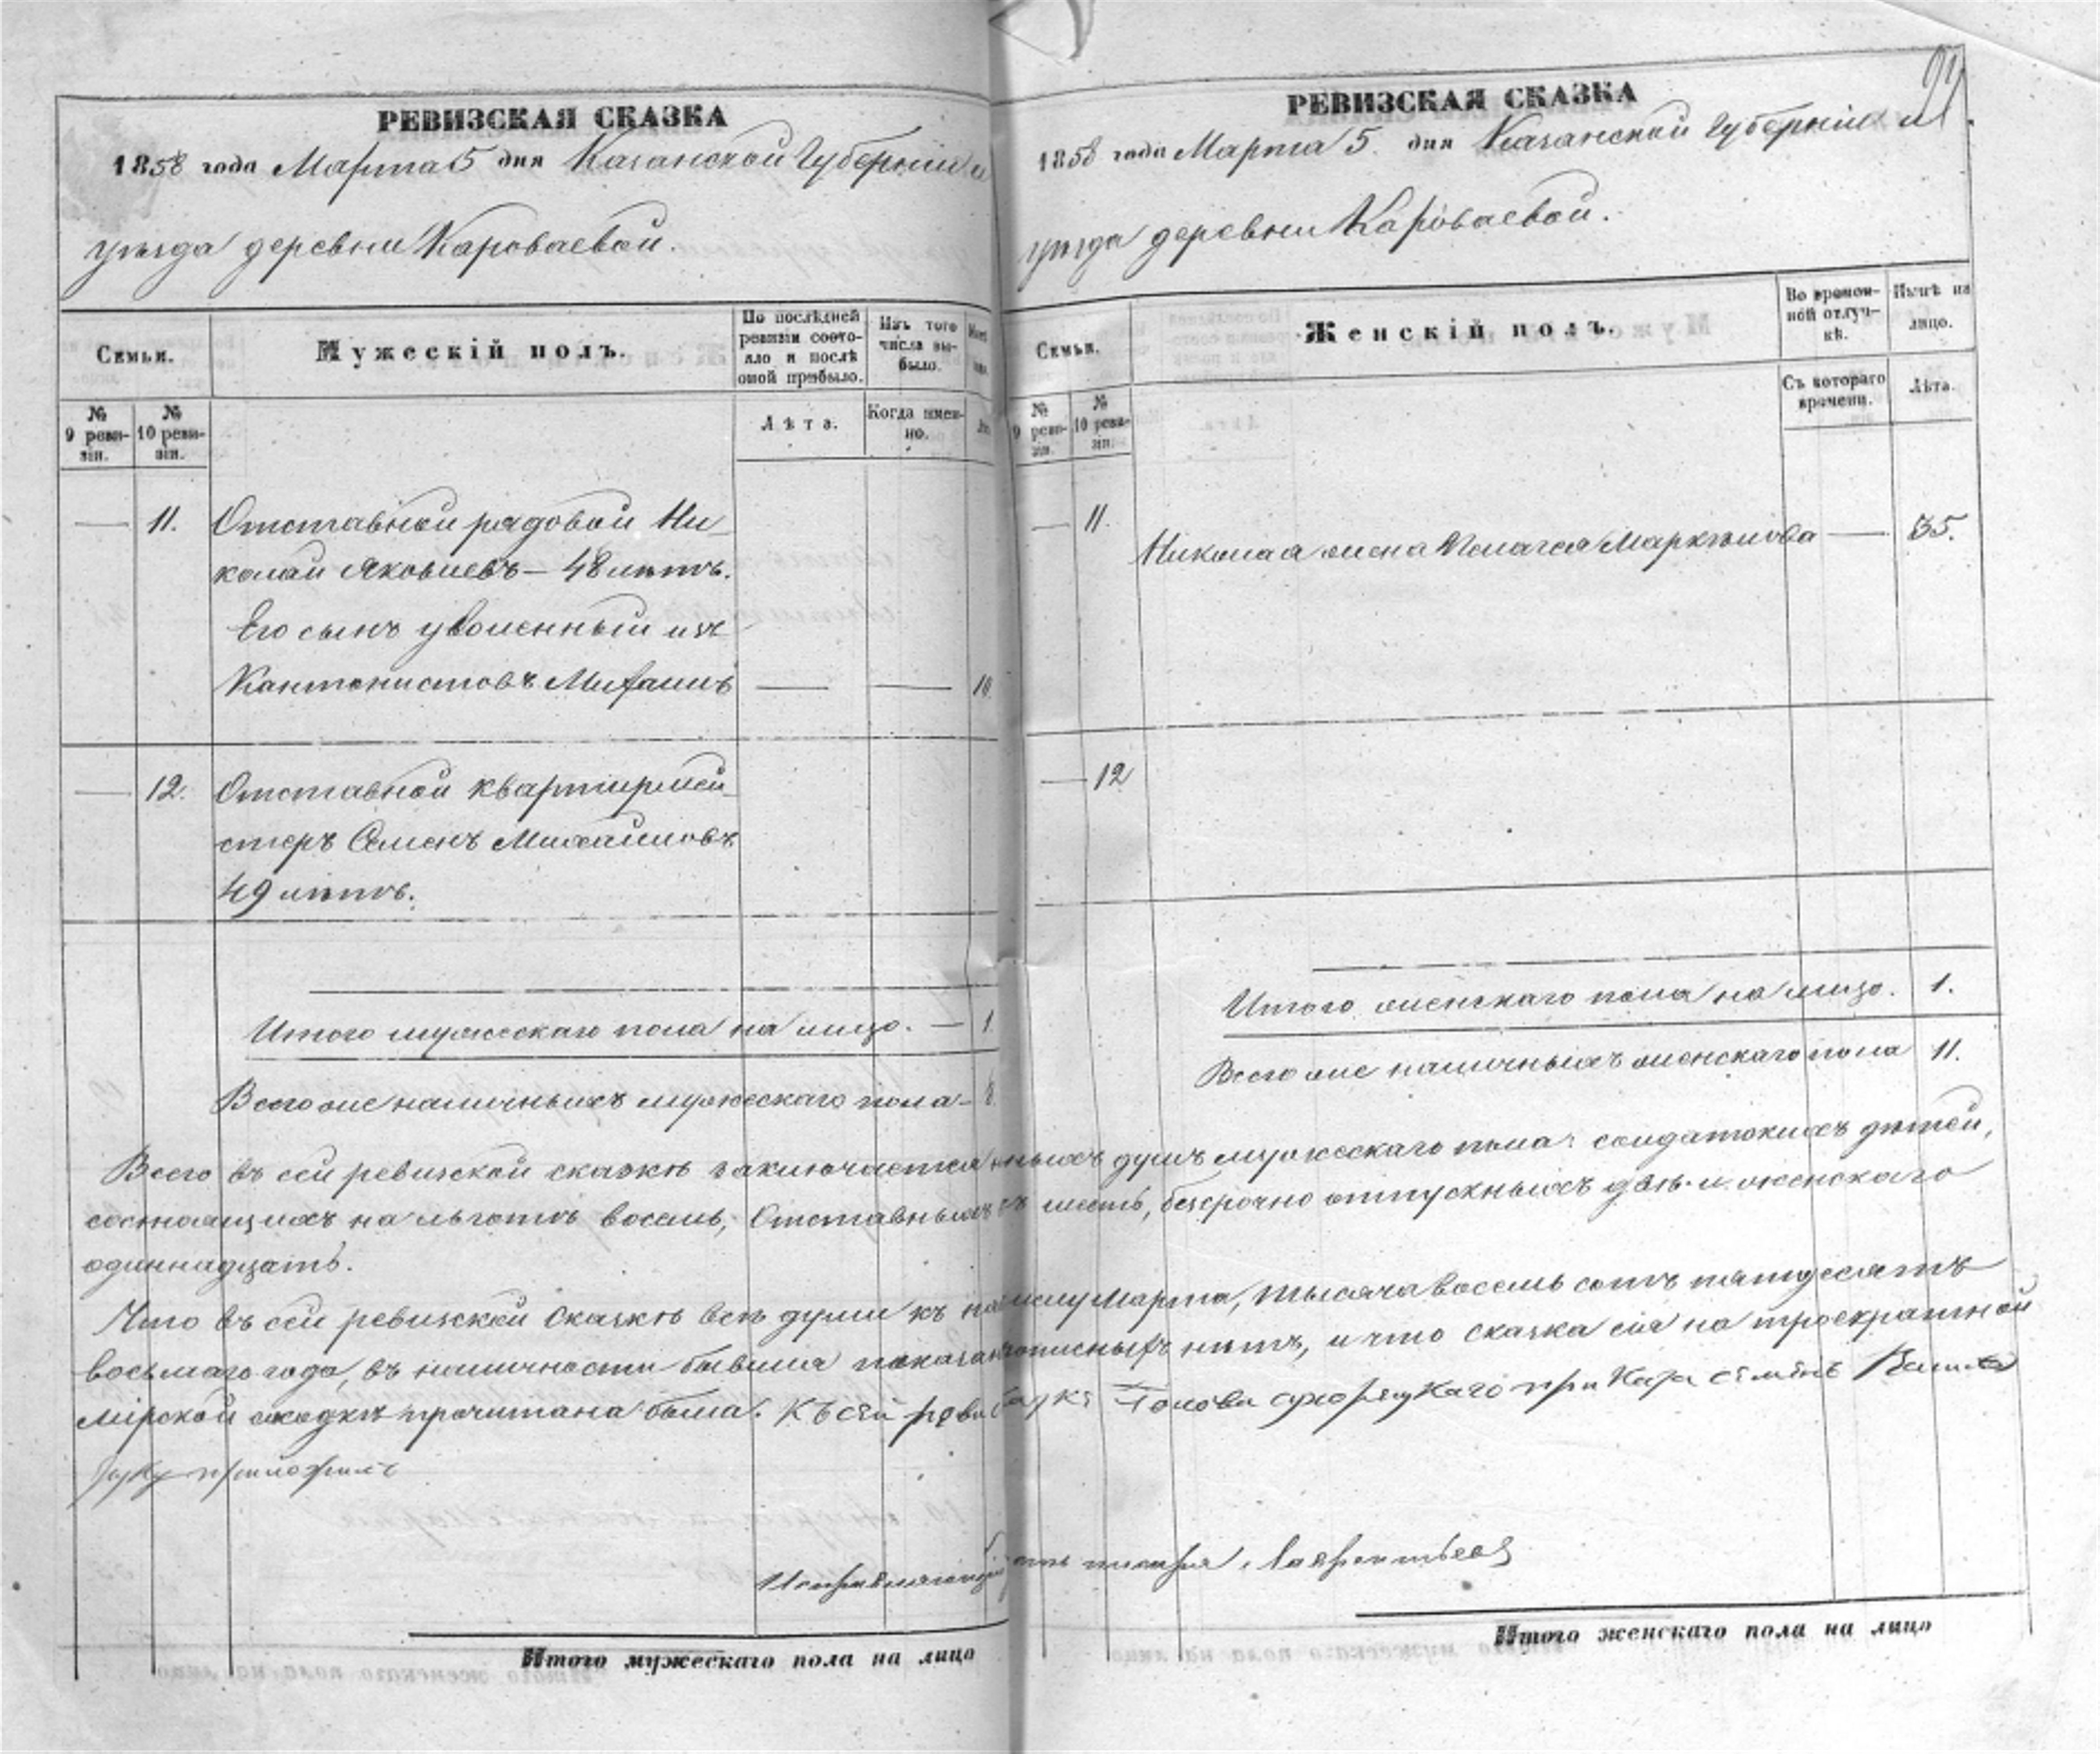 РЕВИЗСКАЯ СКАЗКА
1858 года Марта 5 дня Казанской Губерніи и
уѣзда деревни Кароваевой.
Семьи.
Мужескій полъ.
По послѣдней ревизіи состояло и послѣ оной прибыло.
Изъ того числа выбыло.
№ 9 ревизіи.
№ 10 ревизіи.
Лѣта.
Когда именно.
— 11. Отставной рядовой Ни-
колай Яковлевъ — 48 лѣтъ.
Его сынъ уволенный изъ
Кантонистовъ Михаилъ — — 10.
— 12. Отставной квартирмей-
стеръ Семенъ Михайловъ
49 лѣтъ.
Итого мужескаго пола на лицо. — 1
Всего же наличныхъ мужескаго пола — 8.
РЕВИЗСКАЯ СКАЗКА
1858 года Марта 5. дня Казанской Губерніи и
уѣзда деревни Кароваевой.
Семьи.
Женскій полъ.
Во временной отлучкѣ.
Нынѣ на лицо.
№ 9 ревизіи.
№ 10 ревизіи.
Съ котораго времени.
Лѣта.
— 11. Николая жена Пелагея Маркелова — 35.
— 12
Итого женскаго пола на лицо. 1.
Всего же наличныхъ женскаго пола 11.
Всего въ сей ревизской сказкѣ заключается душъ мужескаго пола: солдатскихъ дѣтей,
состоящихъ на льготѣ восемь, Отставныхъ шесть, безсрочно отпускныхъ два и женскаго
одиннадцать.
Что въ сей ревизской сказкѣ всѣ души къ числу Марта, тысяча восемь сотъ пятдесятъ
восьмаго года, въ наличности бывшія показаны нѣтъ, и что сказка сія на троекратной
мірской сходкѣ прочитана была. Къ сей Голова
руку приложилъ
Исправляющій писаря Лаврентьевъ
Итого мужескаго пола на лицо
Итого женскаго пола на лицо